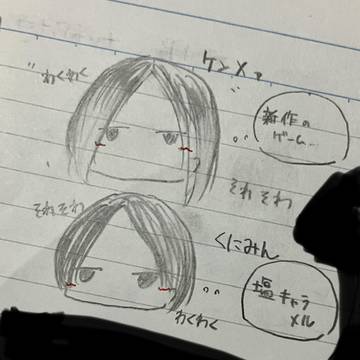 ケンメァ
わくわく
新作の
ゲーム…
そわそわ
そわそわ
くにみん
塩キャラ
メル
わくわく